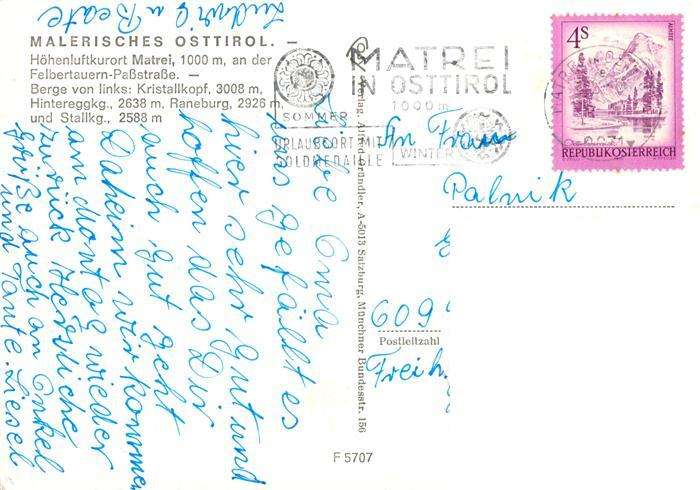 MALERISCHES OSTTIROL. —
Höhenluftkurort Matrei, 1000 m, an der
Felbertauern-Paßstraße. —
Berge von links: Kristallkopf, 3008 m,
Hintereggkg., 2638 m. Raneburg, 2926 m,
und Stallkg., 2588 m
MATREI
IN OSTTIROL
1000 m
SOMMER
URLAUBSORT MIT
GOLDMEDAILLE
WINTER
4S
REPUBLIK ÖSTERREICH
Liebe Oma
uns gefällt es
hier sehr gut und
hoffen das Dir
auch gut geht
Daheim wir kommen
am dontag wieder
zurück Herzliche
grüße auch an Onkel
und Tante Liesel
Ludwig u Beate
An Frau
Palnik
609
Postleitzahl
Freih.
Verlag Alfred Gründler, A-5013 Salzburg, Münchner Bundesstr. 156
F 5707